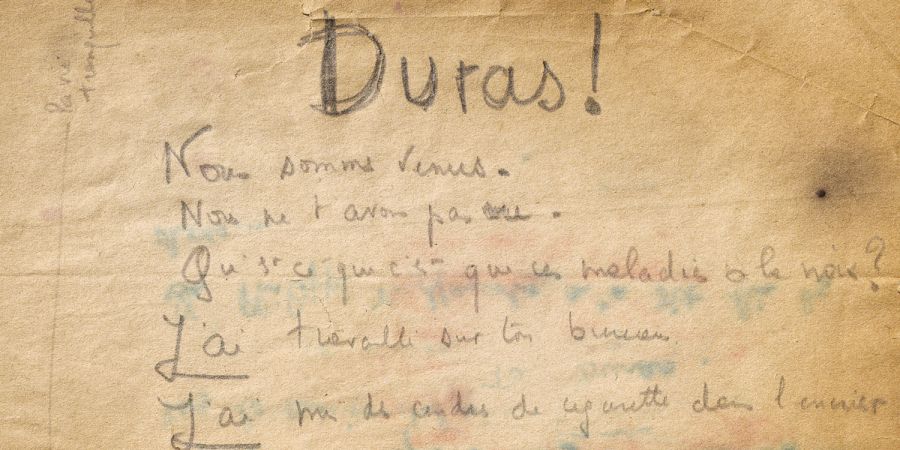 la vie
tranquille
Duras!
Nous sommes venus.
Nous ne t'avons pas vue.
Qu'est ce que c'est que ces maladies à la noix?
J'ai travaillé sur ton bureau
J'ai mis des cendres de cigarette dans l'encrier